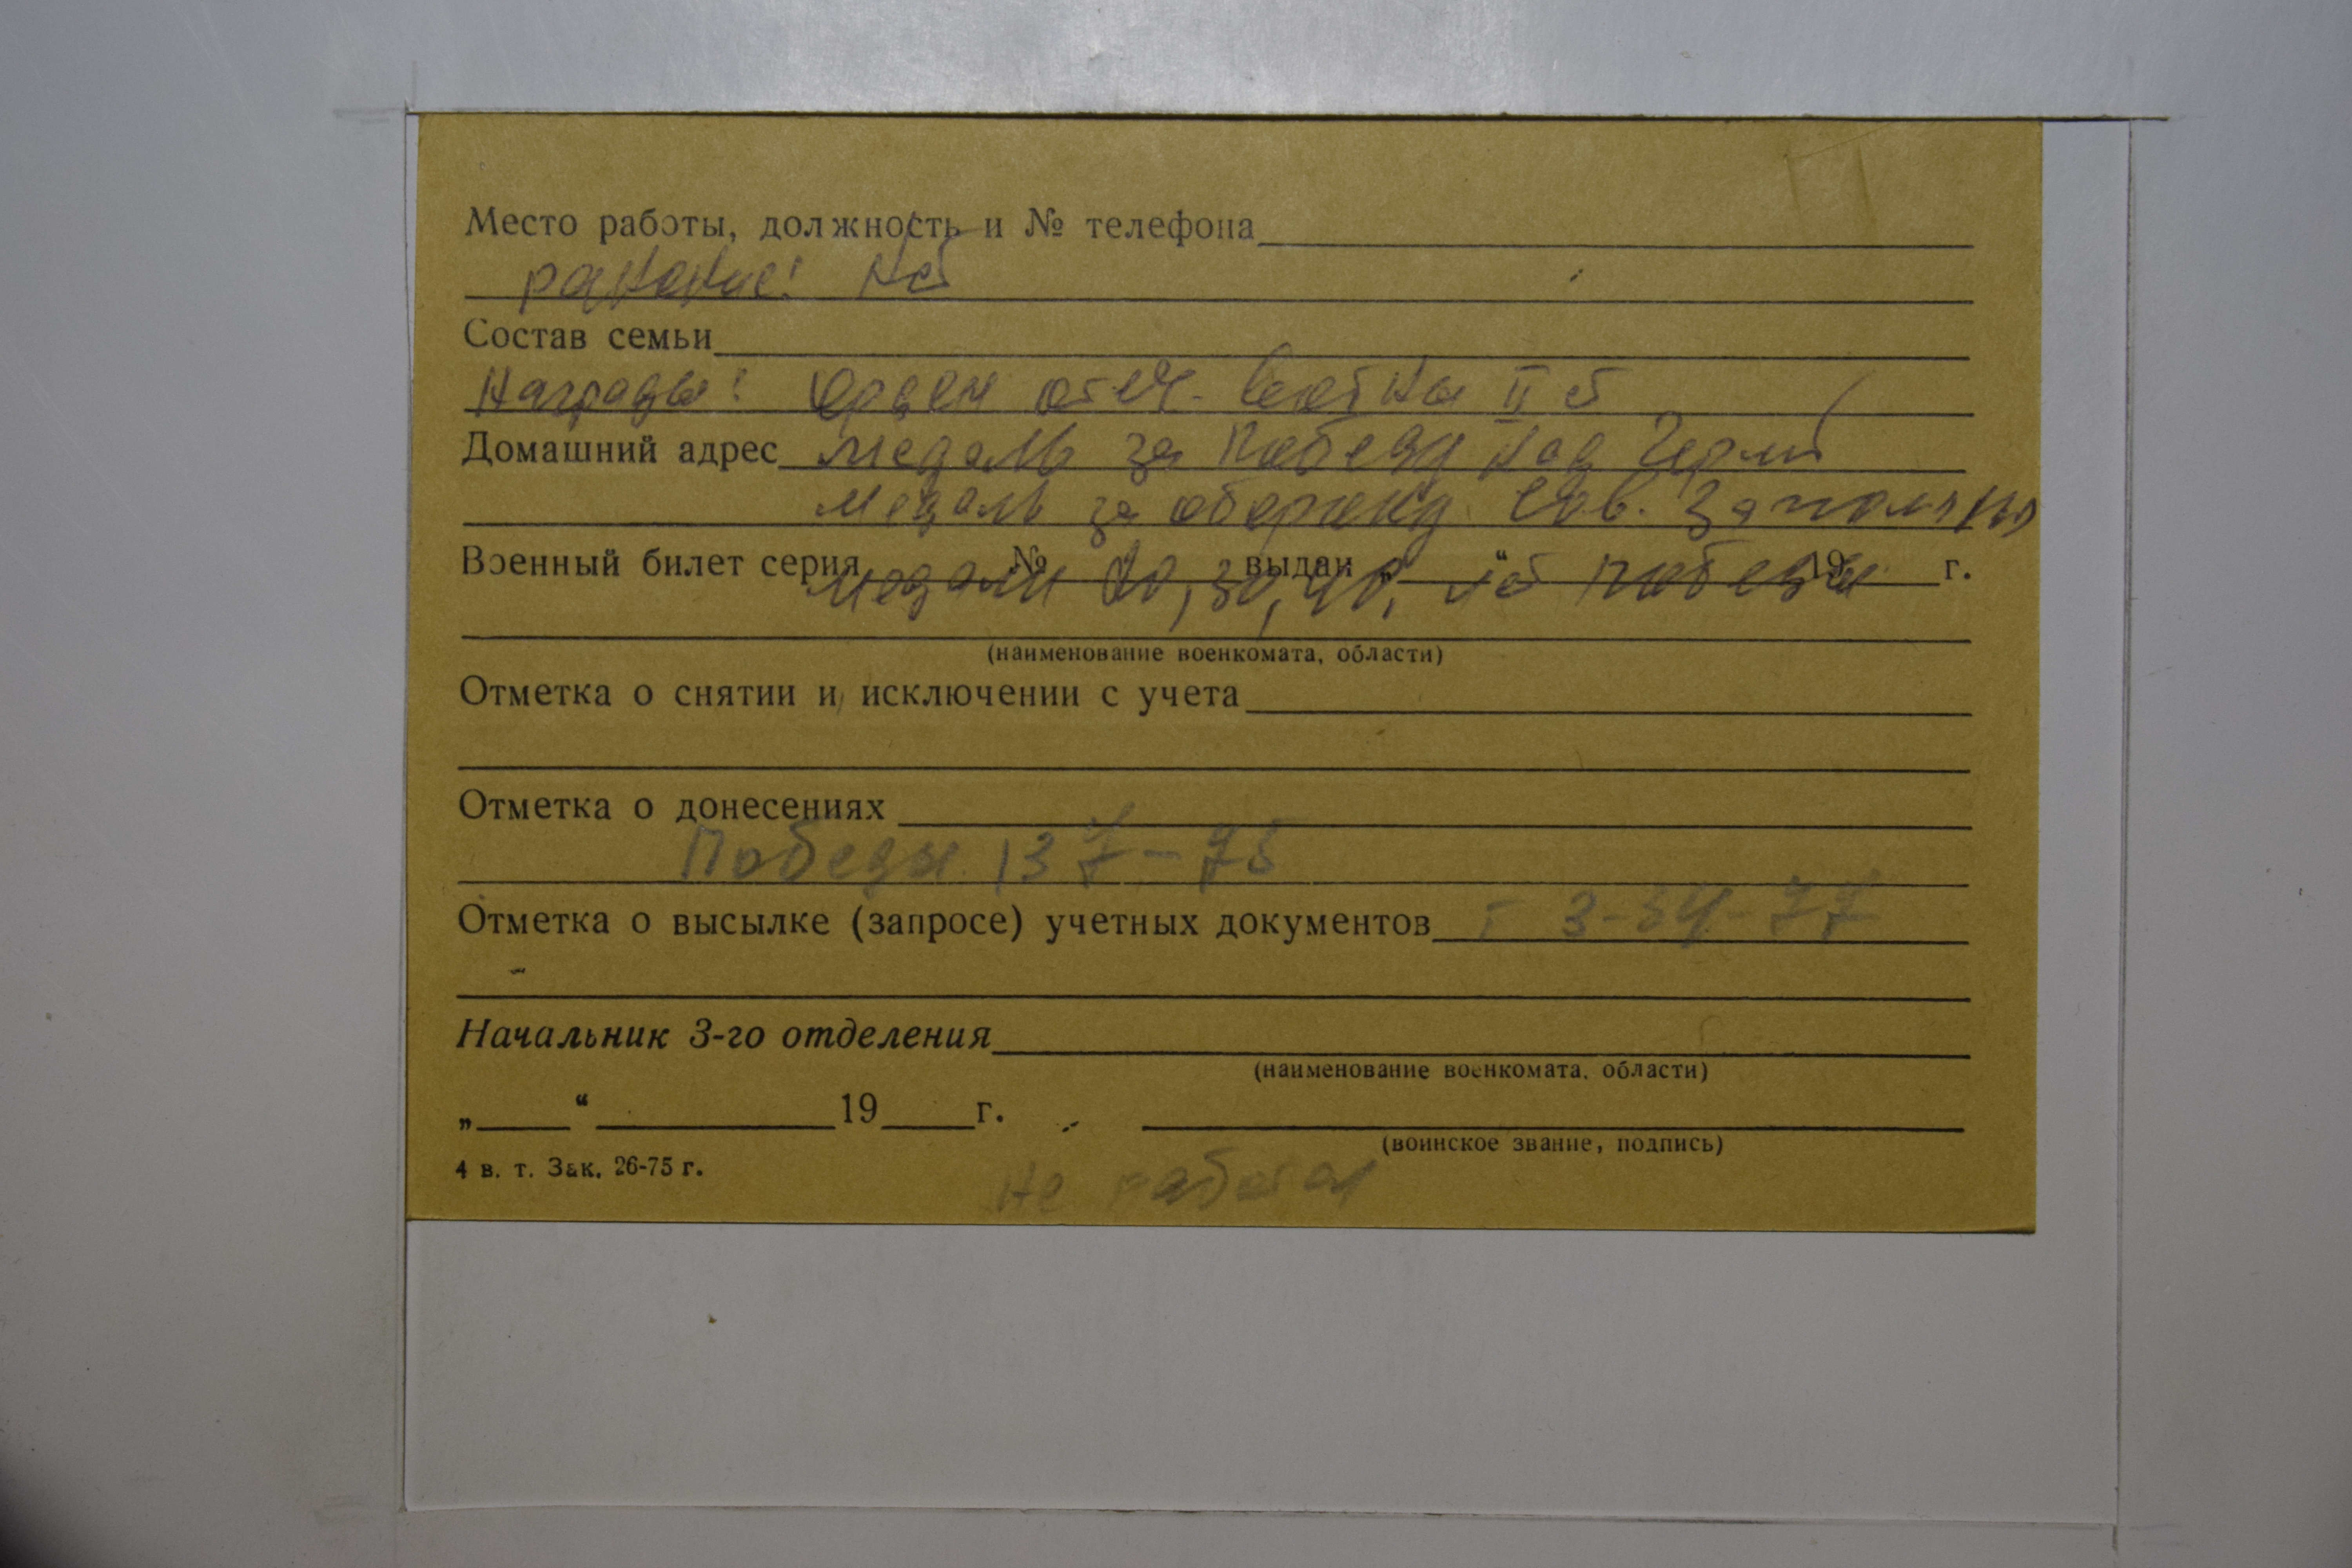 Место работы, должность и № телефона
ранение: нет
Состав семьи
Награды: Орден отеч. войны II ст
Домашний адрес медаль за Победу над Герм
медаль за оборону Сов. Заполяр
Военный билет серия № выдан „ “ 19 г.
медали 20, 30, 40, лет победы
(наименование военкомата, области)
Отметка о снятии и исключении с учета
Отметка о донесениях
Победы 137-75
Отметка о высылке (запросе) учетных документов т 3-34-77
Начальник 3-го отделения
(наименование военкомата, области)
„ “ 19 г.
(воинское звание, подпись)
4 в. т. Зак. 26-75 г.
не работал